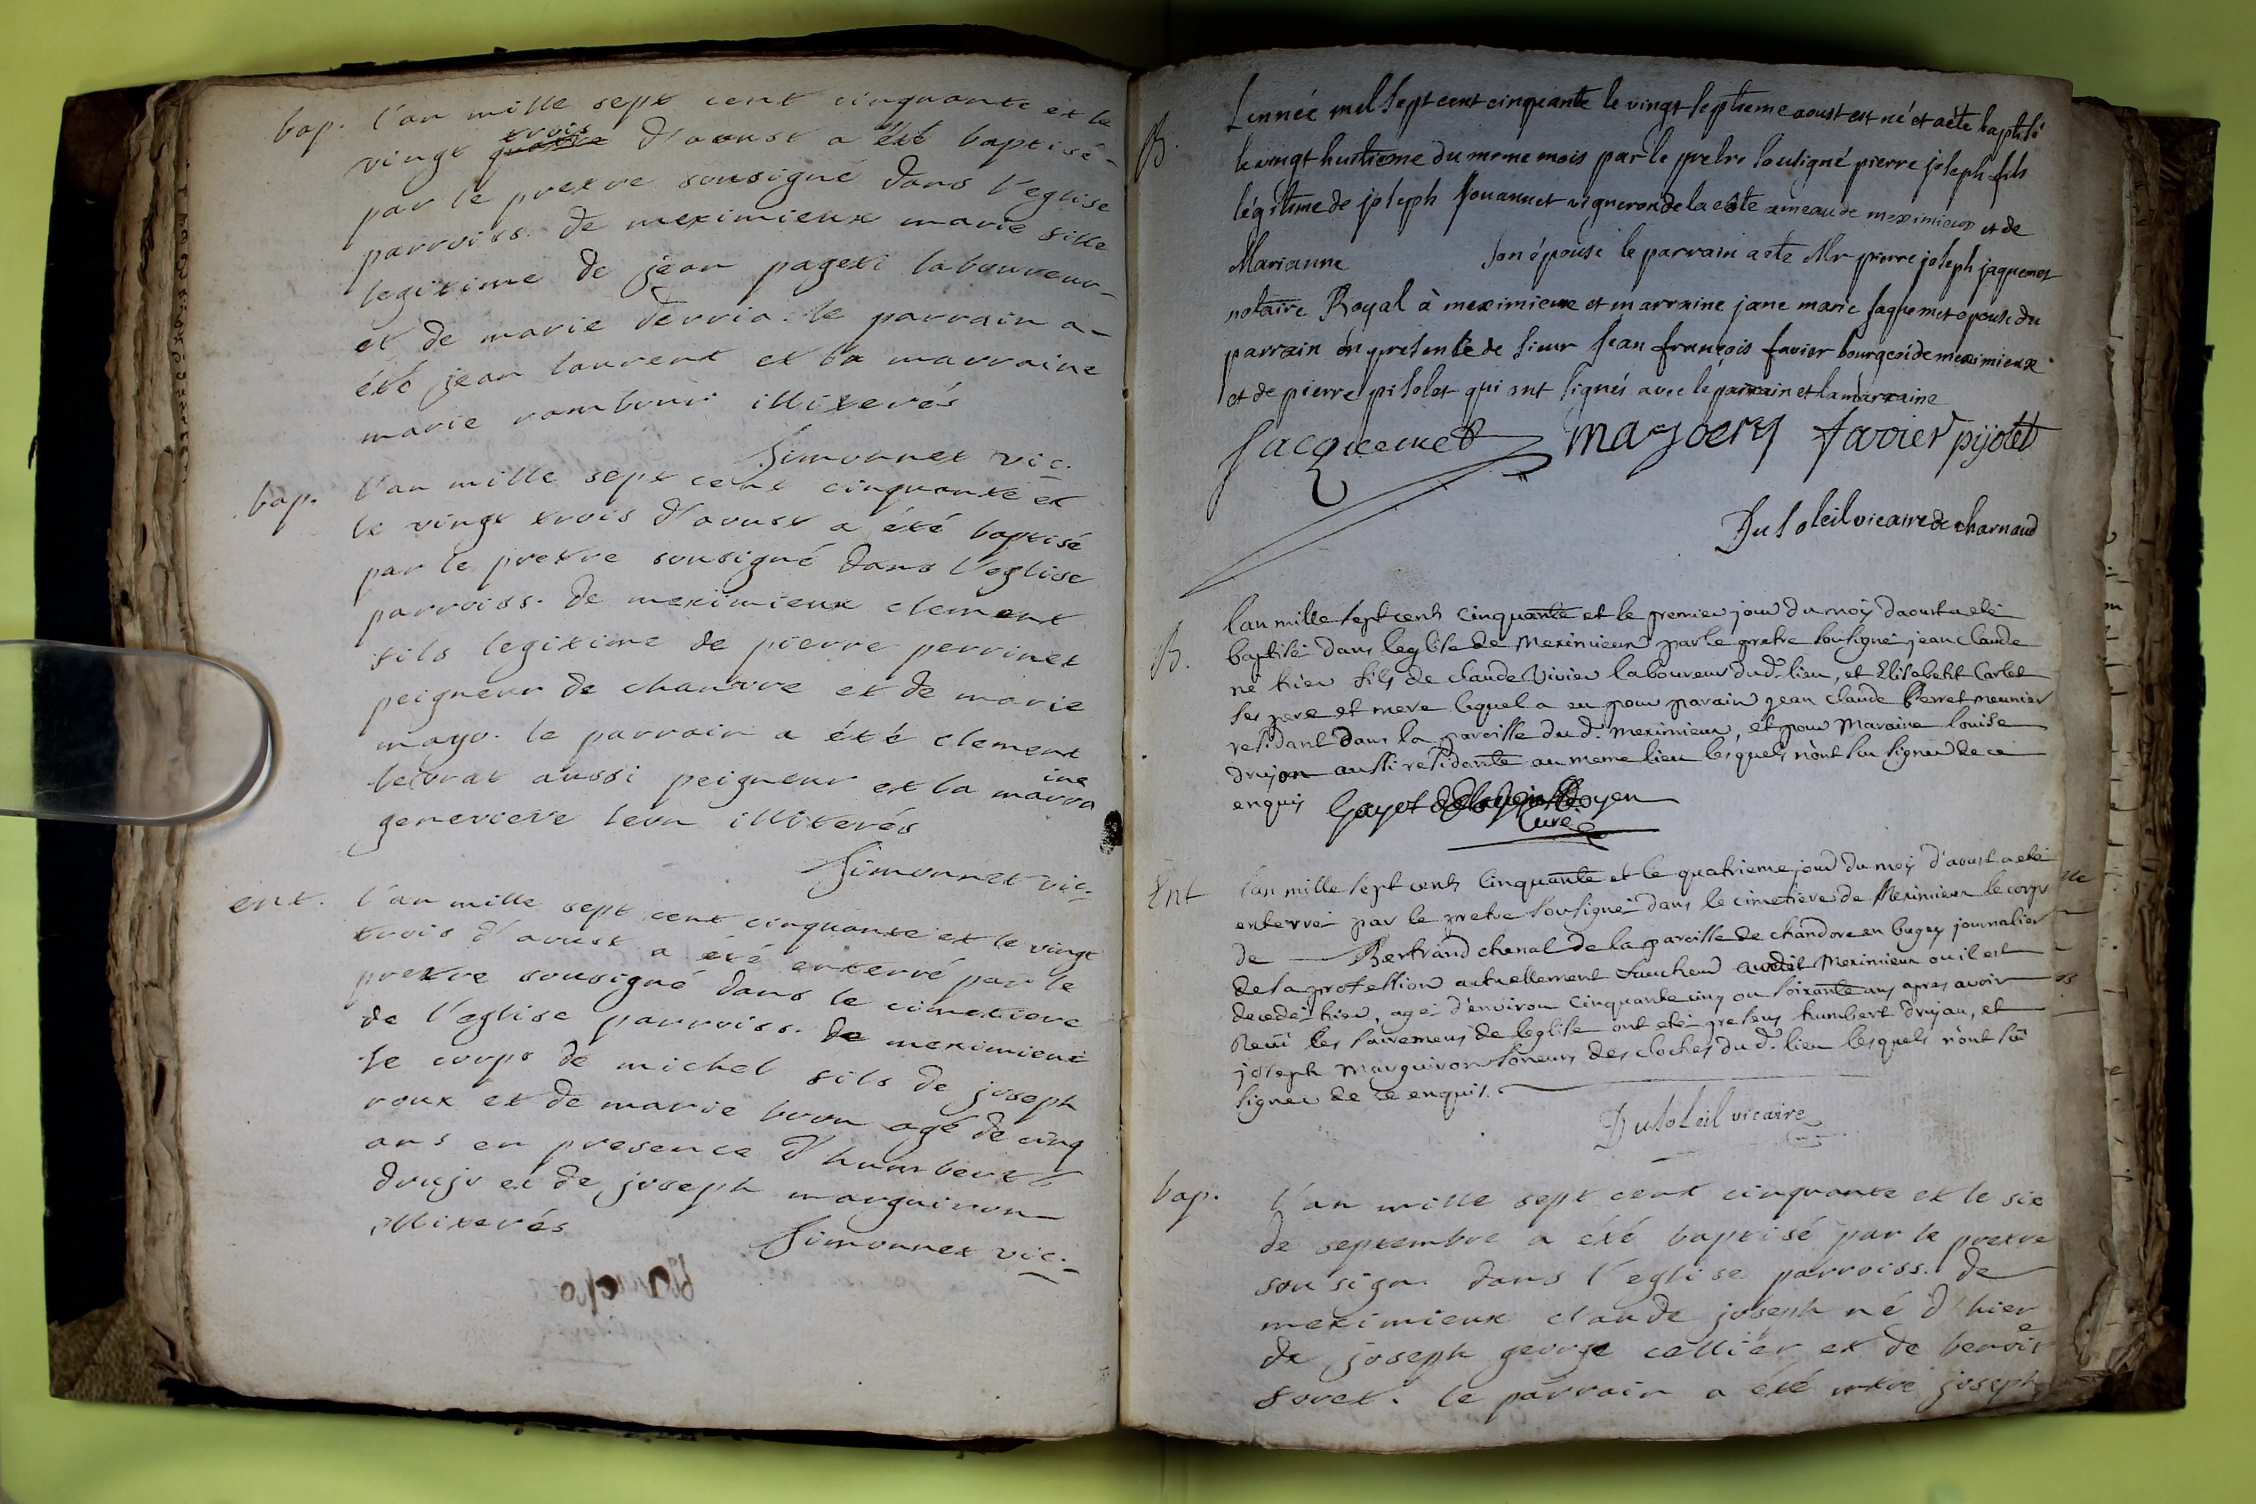 bap. l'an mille sept cent cinquante et le
vingt quatre trois d'aoust a été baptisé
par le pretre sousigné dans l'eglise
parroiss. de meximieux marie fille
legitime de jean pageti laboureur
et de marie derria. le parrain a
été jean laurent et la marraine
marie rambour illiterés
Simonnet vic.
bap. l'an mille sept cent cinquante et
le vingt trois d'aoust a été baptisé
par le pretre sousigné dans l'eglise
parroiss. de meximieux clement
fils legitime de pierre perrinet
peigneur de chanvre et de marie
mayo. le parrain a été clement
levrat aussi peigneur et la marraine
genevieve leon illiterés
Simonnet vic.
ent. l'an mille sept cent cinquante et le vingt
trois d'aoust a été enterré par le
pretre sousigné dans le cimetiere
de l'eglise parroiss. de meximieux
le corps de michel fils de joseph
roux et de marie bron agé de cinq
ans en presence d'humbert
drujo et de joseph marguiron
illiterés
Simonnet vic.
B. L'année mil sept cent cinquante le vingt septieme aoust est né et a été baptisé
le vingt huitieme du meme mois par le pretre sousigné pierre joseph fils
légitime de joseph Jouannet vigneron de la côte ameau de meximieux et de
Marianne son épouse le parrain a été Mr pierre joseph jaquemet
notaire Royal à meximieux et marraine jane marie jaquemet epouse du
parrain en presence de sieur jean françois favier bourgeoi de meximieux
et de pierre pisolet qui ont signés avec le parrain et la marraine
Jacquemet mayoery favier pijolet
Dusoleil vicaire de charnaud
B. l'an mille sept cents cinquante et le premier jour du moy daoust a eté
baptisé dans leglise de Meximieux par le pretre sousigné jean claude
né hier fils de claude Vivier laboureur du d. lieu, et Elisabeth Carlet
ses pere et mere lequel a eu pour parain jean claude Perret meunier
residant dans la paroisse du d. meximieux, et pour Maraine louise
drujon aussi residente au meme lieu lesquels n'ont su signer de ce
enquis Gayet doyen
Curé
Ent l'an mille sept cents cinquante et le quatrieme jour du moy d'aoust a eté
enterré par le pretre sousigné dans le cimetiere de Meximieux le corps
de Bertrand chenal de la paroisse de chandore en bugey journalier
de sa profession actuellement faucheur audit Meximieux ou il est
decedé hier, agé d'environ cinquante cinq ou soixante ans apres avoir
Reçû les sacremens de leglise ont eté presens humbert drujau, et
joseph marguiron soneurs des cloches du d. lieu lesquels n'ont sû
signer de ce enquis.
Dusoleil vicaire
bap. l'an mille sept cent cinquante et le six
de septembre a été baptisé par le pretre
sousign. dans l'eglise parroiss. de
meximieux claude joseph né d'hier
de joseph george cellier et de benoite
soret. le parrain a été mtre joseph